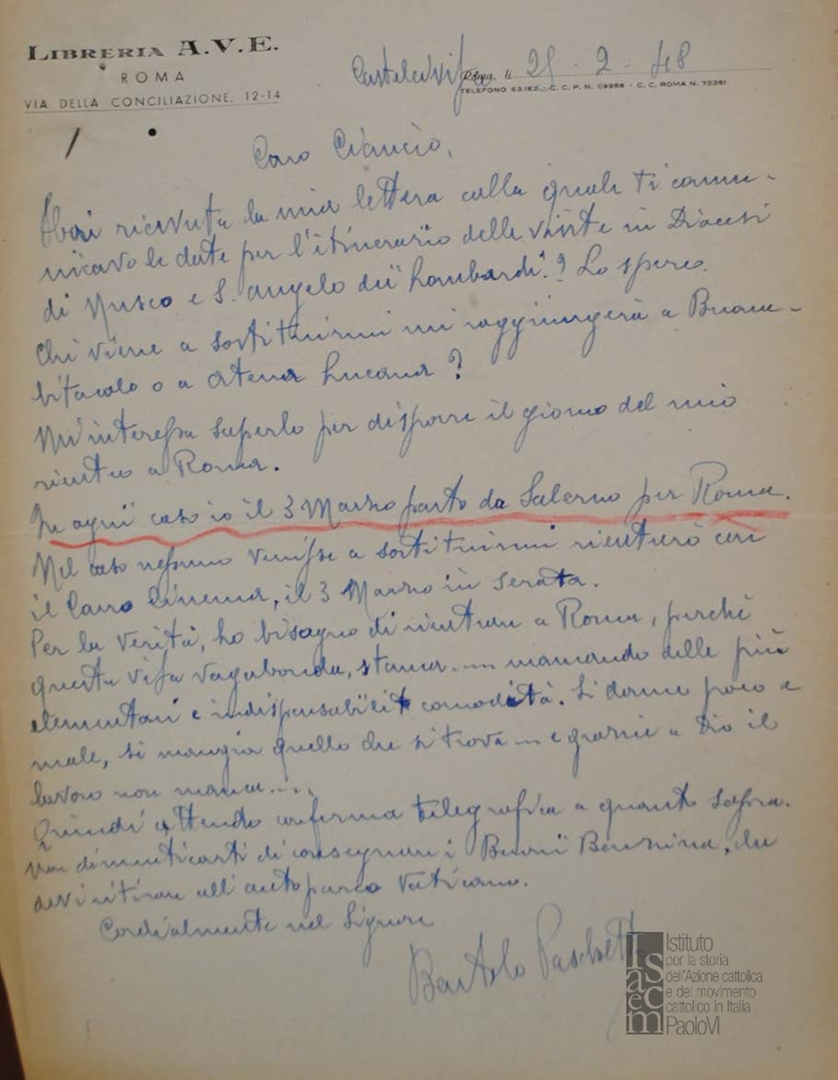 LIBRERIA A.V.E.
ROMA
VIA DELLA CONCILIAZIONE, 12-14
Roma, li 25 - 2 - 48
TELEFONO 53.182 - C. C. P. N. 1/9956 - C. C. ROMA N. 72351
Caro Ciancio,
Avrai ricevuta la mia lettera colla quale ti comu-
nicavo le date per l'itinerario delle visite in Diocesi
di Nusco e S. Angelo dei Lombardi? Lo spero.
Chi viene a sostituirmi mi raggiungerà a Buona-
bitacolo o a Atena Lucana?
M'interessa saperlo per disporre il giorno del mio
rientro a Roma.
In ogni caso io il 3 Marzo parto da Salerno per Roma.
Nel caso nessuno venisse a sostituirmi rientrerò con
il Carro Cinema, il 3 Marzo in serata.
Per la verità, ho bisogno di rientrare a Roma, perché
questa vita vagabonda, stanca.... mancando delle più
elementari e indispensabili comodità. Si dorme poco e
male, si mangia quello che si trova.... e grazie a Dio il
lavoro non manca....
Quindi attendo conferma telegrafica a quanto sopra.
Non dimenticarti di consegnare i Buoni Benzina, che
devi ritirare all'autoparco Vaticano.
Cordialmente nel Signore
Bartolo Paschetta
Isacem
Istituto
per la storia
dell'Azione cattolica
e del movimento
cattolico in Italia
PaoloVI